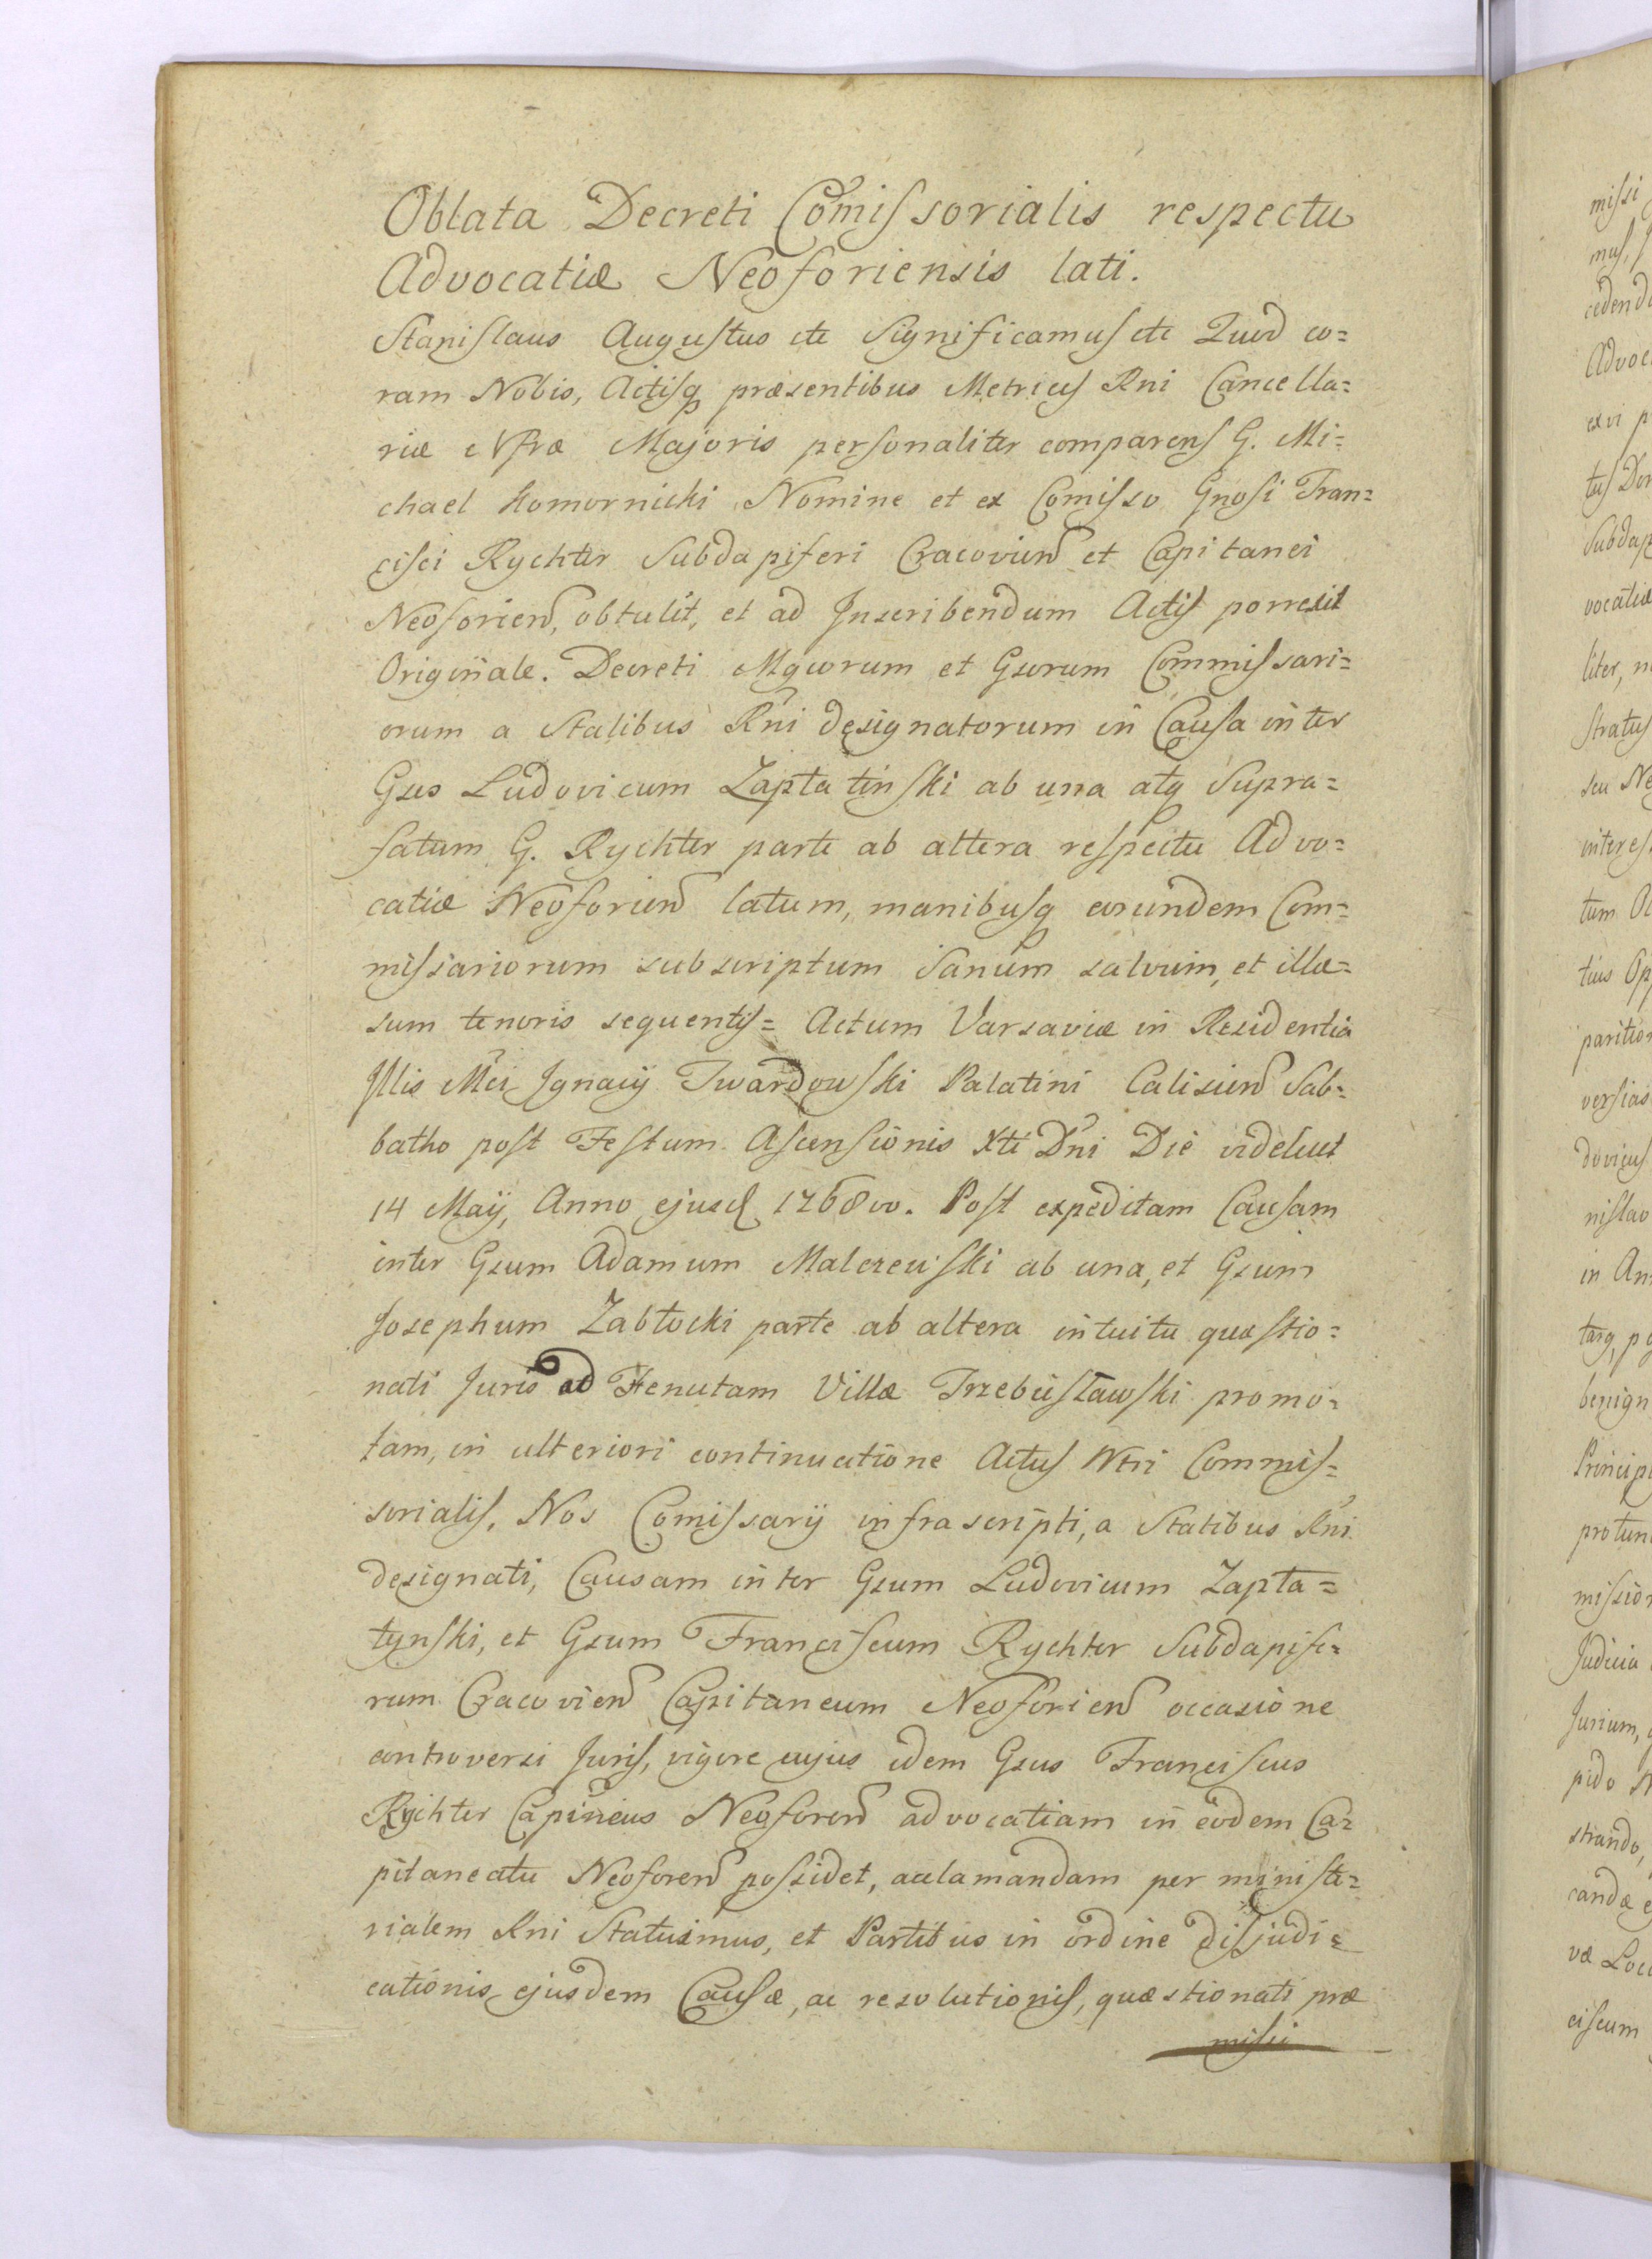 Oblata Decreti Com̃issorialis respectu
Advocatiæ Neoforiensis lati.
Stanislaus Augustus etc Significamus etc Quod co=
ram Nobis, Actisq præsentibus Metrices Rni Cancella=
riæ Nræ Majoris personaliter comparens G. Mi=
chael Komornicki Nomine et ex Comisso Gnosi Fran=
cisci Rychter Subdapiferi Cracovien et Capitanei
Neoforien, obtulit, et ad Inscribendum Actis porrexit
Originale. Decreti Mgcorum et Gsorum Commissari=
orum a Statibus Rni designatorum in Causa inter
Gsos Ludovicum Zaptatinski ab una atq Supra=
fatum G. Rychter parte ab altera respectu Advo=
catiæ Neoforien latum, manibusq eorundem Com=
missariorum subscriptum Sanum salvum, et illæ=
sum tenoris sequentis= Actum Varsaviæ in Residentia
Illis Mci Ignacij Twardowski Palatini Calisien Sab=
batho post Festum Ascensionis Xti Dni Die videlicet
14 Maij, Anno ejusd 1768vo. Post expeditam Causam
inter Gsum Adamum Malczewski ab una, et Gsum
Josephum Zabłocki parte ab altera intuitu quæstio=
nati Juris ad Tenutam Villæ Trzebisławski promo=
tam, in ulteriori continuatione Actus Ntri Commis=
sorialis, Nos Comissarij infrascripti, a Statibus Rni
designati, Causam inter Gsum Ludovicum Zapta=
tynski, et Gsum Franciscum Rychter Subdapife=
rum Cracovien Capitaneum Neoforien occasione
controversi Juris, vigore cujus idem Gsus Franciscus
Rychter Capineus Neoforen advocatiam in eodem Ca=
pitaneatu Neoforen possidet, acclamandam per ministe=
rialem Rni Statuimus, et Partibus in ordine disjudi=
cationis ejusdem Causæ, ac resolutionis, quæstionati præ
missi